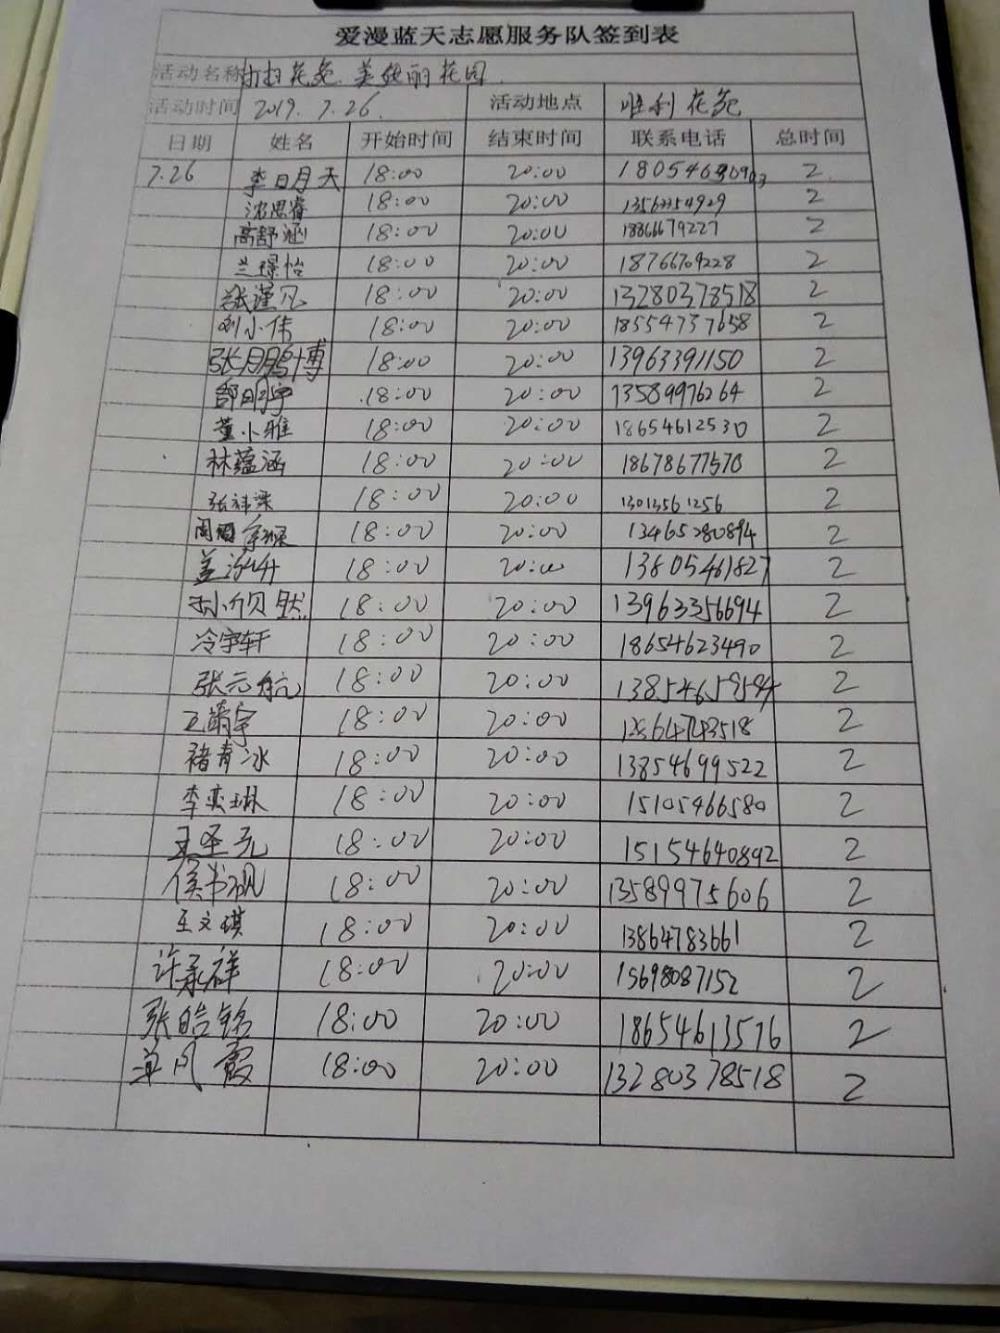 爱漫蓝天志愿服务队签到表
活动名称 打扫花苑 美丽花园
活动时间 2019.7.26. 活动地点 胜利花苑
日期 姓名 开始时间 结束时间 联系电话 总时间
7.26 李日月天 18:00 20:00 2
沈思睿 18:00 20:00 13563354929 2
高舒涵 18:00 20:00 18866679227 2
兰璟怡 18:00 20:00 18766709228 2
张谨凡 18:00 20:00 13280378518 2
刘小伟 18:00 20:00 18554737658 2
张月鹏博 18:00 20:00 13963391150 2
邵明宇 18:00 20:00 13589976264 2
董小雅 18:00 20:00 18654612530 2
林蕴涵 18:00 20:00 18678677570 2
张祎梁 18:00 20:00 13013561256 2
18:00 20:00 13465280894 2
盖 18:00 20:00 13805461827 2
孙贝然 18:00 20:00 13963356694 2
冷宇轩 18:00 20:00 18654623490 2
张元航 18:00 20:00 2
王靖宇 18:00 20:00 2
褚青冰 18:00 20:00 13854699522 2
李奕琳 18:00 20:00 15105466580 2
王圣元 18:00 20:00 15154640892 2
侯书砚 18:00 20:00 13589975606 2
王文琪 18:00 20:00 13864783661 2
许承祥 18:00 20:00 15698087152 2
张皓铭 18:00 20:00 18654613576 2
单凤霞 18:00 20:00 13280378518 2